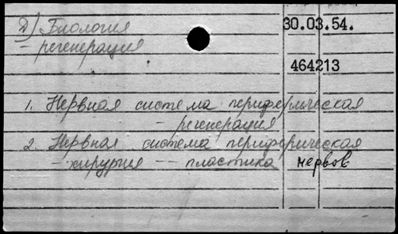 Д) Биология
30.03.54.
– регенерация
464213
1. Нервная система периферическая
– регенерация
2. Нервная система периферическая
– хирургия -- пластика нервов